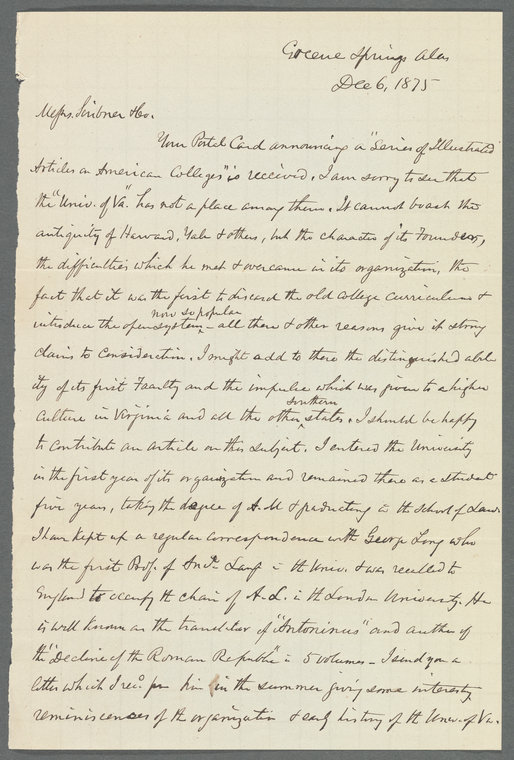 Greene Springs Ala
Dec 6, 1875
Messrs. Scribner & Co.
Your Postal Card announcing a "Series of Illustrated
Articles on American Colleges" is received. I am sorry to see that
the "Univ. of Va." has not a place among them. It cannot boast the
antiquity of Harvard, Yale & others, but the character of its Founder,
the difficulties which he met & overcame in its organization, the
fact that it was the first to discard the old college curriculum &
now so popular
introduce the open system - all these & other reasons give it strong
claims to consideration. I might add to these the distinguished abil-
ity of its first Faculty and the impulse which was given to a higher
southern
culture in Virginia and all the other states. I should be happy
to contribute an article on this subject. I entered the University
in the first year of its organization and remained there as a student
five years, taking the degree of A.M & graduating in the School of Law.
I have kept up a regular correspondence with George Long who
was the first Prof. of Anct. Lang in the Univ. & was recalled to
England to occupy the chair of A.L. in the London University. He
is well known as the translator of "Antoninus" and author of
the "Decline of the Roman Republic" in 5 volumes - I send you a
letter which I recd. from him in the summer giving some interestg
reminiscences of the organization & early history of the Univ. of Va.